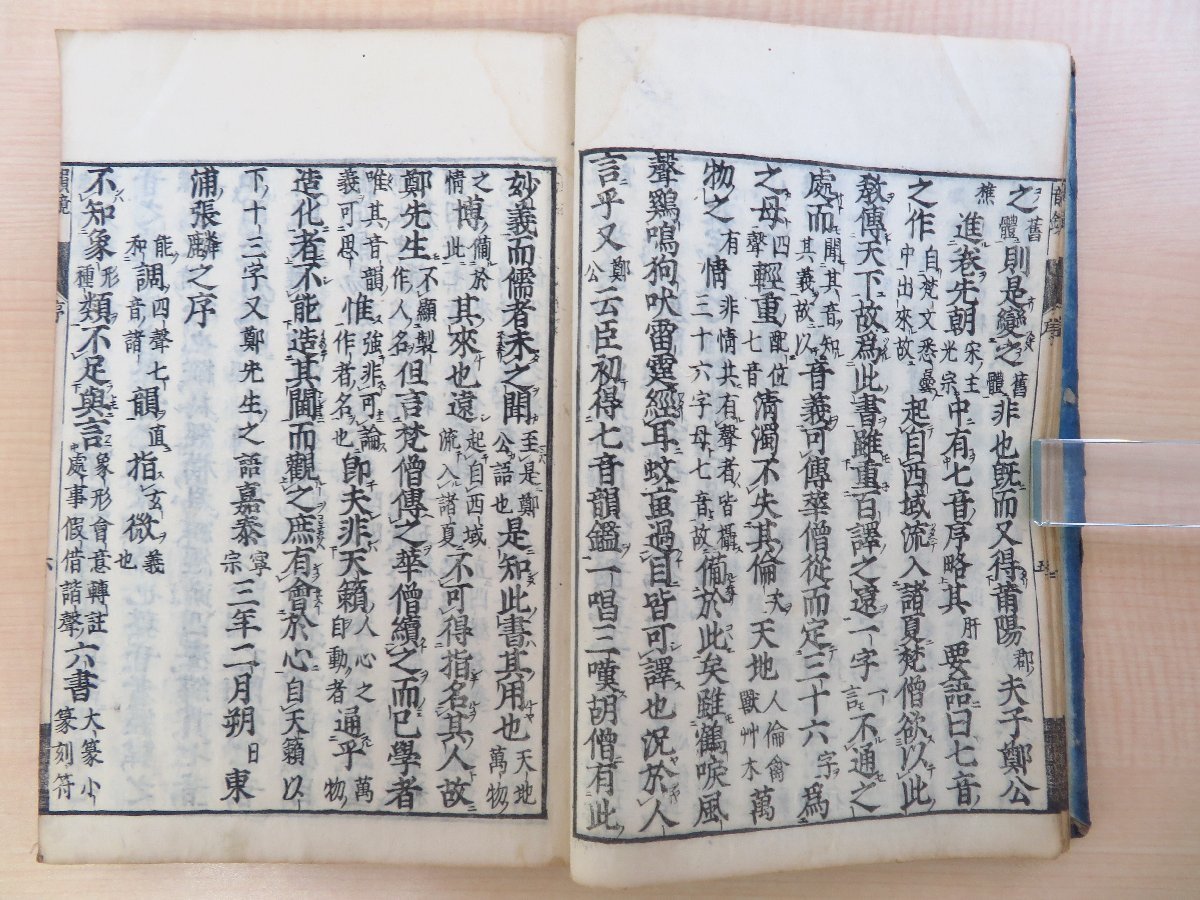 之舊體則是變之舊體非也既而又得莆陽郡夫子鄭公
樵進卷先朝宋主光宗中有七音序略其要語曰七音
之作白梵文悉曇中出來故起自西域流入諸夏梵僧欲以此
教傳天下故為此書雖重百譯之遠一字不通之
處而聞其音知其義故以音義可傳華僧從而定三十六字為
之母四聲輕重配位七音清濁不失其倫天地人倫禽獸艸木萬
物之有情非情共有聲者皆攝三十六字母七音故備於此矣雖鶴唳風
聲鷄鳴狗吠雷霆經耳蚊䖟過目皆可譯也況於人
言乎又鄭公云臣初得七音韻鑑一唱三嘆胡僧有此
妙義而儒者未之聞至是鄭公語也是知此書其用也天地萬物
之情備於此博其來也遠起自西域流入諸夏不可得指名其人故
鄭先生不顯製作人名但言梵僧傳之華僧續之而已學者
惟其音韻義可思惟強非可論作者名也即夫非天籟人心之自動者通乎萬物
造化者不能造其閫而觀之庶有會於心自天籟以
下十三字又鄭先生之語嘉泰寧宗三年二月朔日東
浦張麟之序
能調四聲七音諧和韻直指玄微義也
不知象形種類不足與言象形會意轉註處事假借諧聲六書大篆小篆刻符
韻鏡
序
六